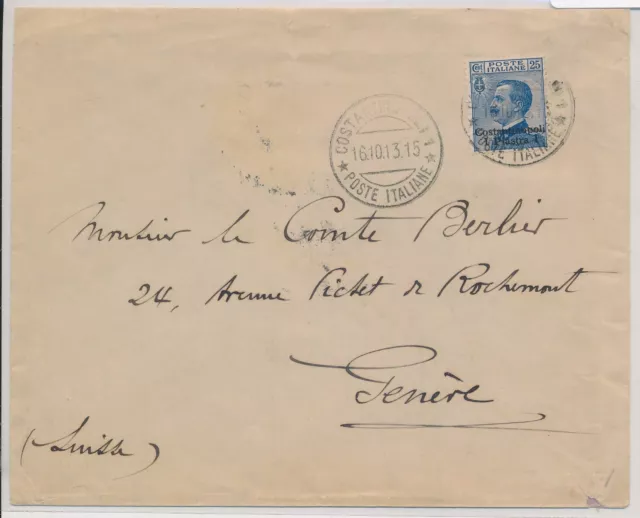 Cent 25
POSTE
ITALIANE
Costantinopoli
1 Piastra 1
16.10.13.15
★ POSTE ITALIANE ★
Monsieur le Comte Berlier
24, Avenue Pictet de Rochemont
Genève
(Suisse)